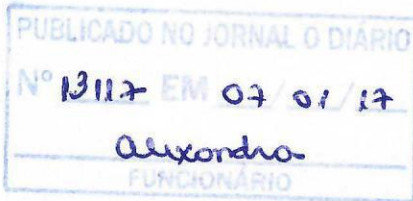 PUBLICADO NO JORNAL O DIÁRIO
Nº 13117 EM 07/01/17
Alexandra
FUNCIONÁRIO